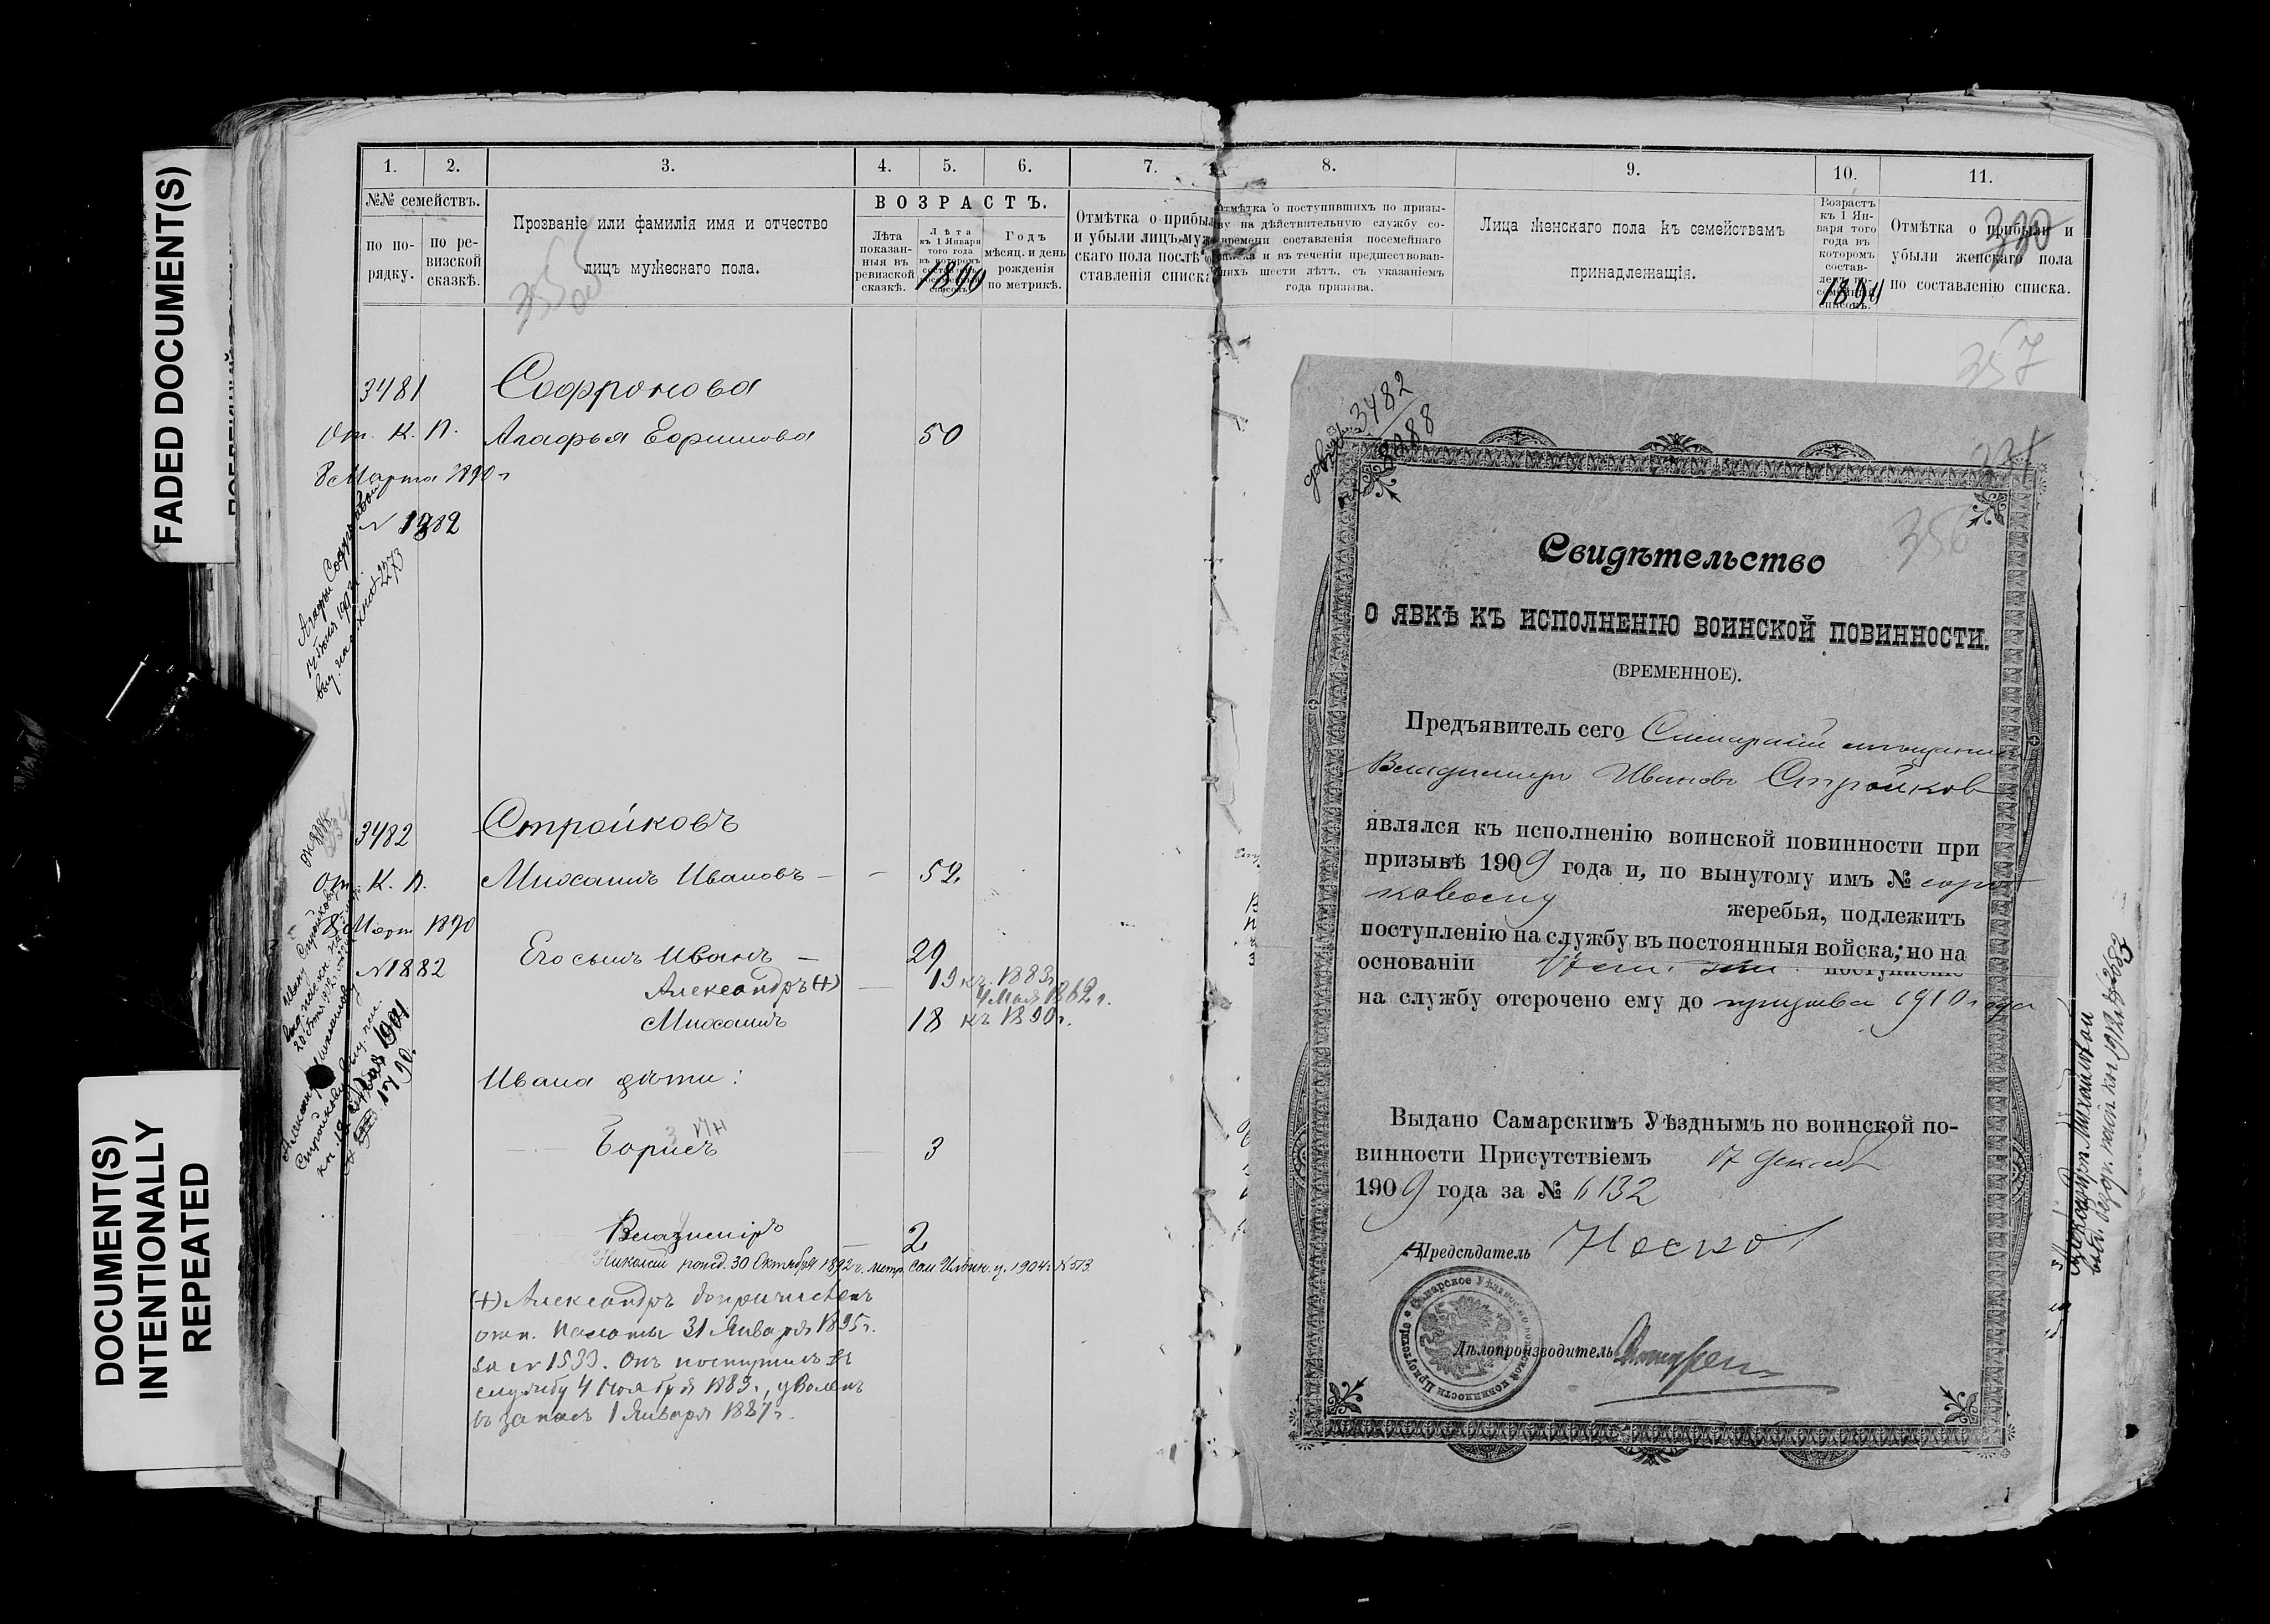 FADED DOCUMENT(S)
DOCUMENT(S)
INTENTIONALLY
REPEATED
1. 2. 3. 4. 5. 6. 7. 8. 9. 10. 11.
№№ семействъ.
по по-
рядку.
по ре-
визской
сказкѣ.
Прозваніе или фамилія имя и отчество
лицъ мужескаго пола.
ВОЗРАСТЪ.
Лѣта
показан-
ныя въ
ревизской
сказкѣ.
Лѣта
къ 1 Января
того года
въ которомъ
1890
Годъ
мѣсяц. и день
рожденія
по метрикѣ.
Отмѣтка о прибы
и убыли лицъ муже
скаго пола послѣ
ставленія списка
Отмѣтка о поступившихъ по призы-
ву на дѣйствительную службу со-
времени составленія посемейнаго
списка и въ теченіи предшествовав-
шихъ шести лѣтъ, съ указаніемъ
года призыва.
Лица женскаго пола къ семействамъ
принадлежащія.
Возрастъ
къ 1 Ян-
варя того
года въ
которомъ
состав-
Отмѣтка о прибыли и
убыли женскаго пола
по составленію списка.
380
355
357
3481 Софронова
От. К. П. Агафья Ефимова 50
8 Марта 1890 г
№ 1382
3482 Стройковъ
От. К. П. Михаилъ Ивановъ — — 52
8 Март 1890
№1882
Его сынъ Иванъ — 29
Александръ (+) — 19 къ 1883 г.
4 Мая 1862 г.
Михаилъ 18 къ 1890 г.
Ивана дѣти:
Борисъ 3
Владиміръ — 2
Николай рожд. 30 Октября 1892 г. метр. Сам. Ильин. ц. 1904 г. № 513.
(+) Александръ допричисленъ
отн. Палаты 31 Января 1895 г.
за № 1533. Онъ поступилъ въ
службу 4 Ноября 1883 г., уволенъ
въ запасъ 1 Января 1887 г.
3482
8288
356
Свидѣтельство
О ЯВКѢ КЪ ИСПОЛНЕНІЮ ВОИНСКОЙ ПОВИННОСТИ.
(ВРЕМЕННОЕ).
Предъявитель сего Самарскій мѣщанинъ
Владиміръ Ивановъ Стройковъ
являлся къ исполненію воинской повинности при
призывѣ 1909 года и, по вынутому имъ № соро
ковому жеребья, подлежитъ
поступленію на службу въ постоянныя войска; но на
основаніи поступленіе
на службу отсрочено ему до призыва 1910 года
Выдано Самарскимъ Уѣзднымъ по воинской по-
винности Присутствіемъ 17 Декаб
1909 года за № 6132
Предсѣдатель
Дѣлопроизводитель